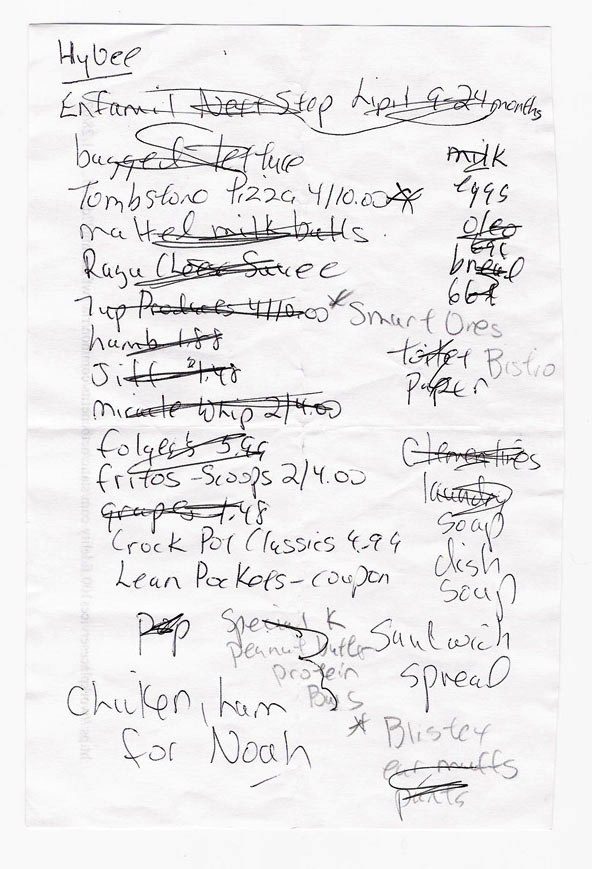 HyVee
Enfamil Next Step Lipil 9-24 months
bagged lettuce
Tombstone Pizza 4/10.00
malted milk balls
Ragu Chees Sauce
7up Products 4/10.00
hamb 1.88
Jiff 1.48
miracle Whip 2/4.00
folgers 5.99
fritos - Scoops 2/4.00
grapes 1.48
Crock Pot Classics 4.99
Lean Pockets - coupon
pop
Special K
peanut butter
protein
Bars
Chicken, ham
for Noah
milk
eggs
oleo
bread
Smart Ones
Bistro
toilet
paper
Clementines
laundry
soap
dish
soap
Sandwich
spread
Blistex
ear muffs
pants